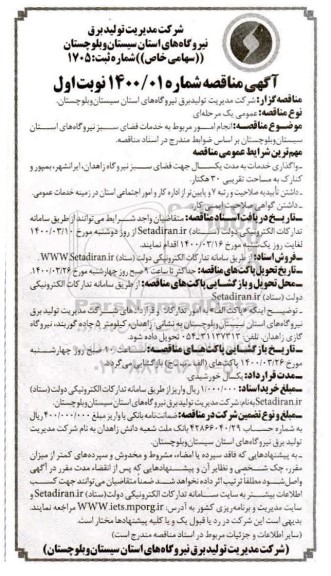 شرکت مدیریت تولید برق
نیروگاه‌های استان سیستان وبلوچستان
((سهامی خاص)) شماره ثبت: ۱۷۰۵
آگهی مناقصه شماره ۱۴۰۰/۰۱ نوبت اول
مناقصه گزار: شرکت مدیریت تولیدبرق نیروگاه‌های استان سیستان وبلوچستان.
نوع مناقصه: عمومی یک مرحله‌ای
موضوع مناقصه: انجام امور مربوط به خدمات فضای سبز نیروگاه‌های استان
سیستان وبلوچستان بر اساس ضوابط مندرج در اسناد مناقصه.
مهم‌ترین شرایط عمومی مناقصه
-واگذاری خدمات به مدت یکسال جهت فضای سبز نیروگاه زاهدان، ایرانشهر، بمپور و
کنارک به مساحت تقریبی ۳۰ هکتار.
-داشتن تأییدیه صلاحیت و رتبه ۷ و پایین‌تر از اداره کار و امور اجتماعی استان در زمینه خدمات عمومی.
-داشتن گواهی صلاحیت ایمنی کار.
-تاریخ دریافت اسناد مناقصه: متقاضیان واجد شرایط می‌توانند از طریق سامانه
تدارکات الکترونیکی دولت (ستاد) Setadiran.ir از روز دوشنبه مورخ ۱۴۰۰/۰۳/۱۰
لغایت روز یکشنبه مورخ ۱۴۰۰/۰۳/۱۶ اقدام نمایند.
-فروش اسناد: از طریق سامانه تدارکات الکترونیکی دولت (ستاد) WWW.Setadiran.ir
-تاریخ تحویل پاکت‌های مناقصه: حداکثر تا ساعت ۹ صبح روز چهارشنبه مورخ ۱۴۰۰/۰۳/۲۶
-محل تحویل و بازگشایی پاکت‌های مناقصه: از طریق سامانه تدارکات الکترونیکی
دولت (ستاد) Setadiran.ir
-توضیح اینکه «پاکت الف» به امور تدارکات و قراردادهای شرکت مدیریت تولید برق
نیروگاه‌های استان سیستان وبلوچستان به نشانی: زاهدان، کیلومتر ۵ جاده گوربند، نیروگاه
گازی زاهدان، تلفن: ۳۱۱۳۷۳۱۳-۰۵۴ تحویل داده شود.
-تاریخ بازگشایی پاکت‌های مناقصه: ساعت ۱۰ صبح روز چهارشنبه
مورخ ۱۴۰۰/۰۳/۲۶ پاکت‌های (الف-ب-ج) بازگشایی می‌گردد.
-مدت قرارداد: یکسال خورشیدی.
-مبلغ خرید اسناد: ۱/۰۰۰/۰۰۰ ریال واریز از طریق سامانه تدارکات الکترونیکی دولت (ستاد)
Setadiran.ir به نام شرکت مدیریت تولید برق نیروگاه‌های استان سیستان وبلوچستان.
-مبلغ و نوع تضمین شرکت در مناقصه: ضمانت‌نامه بانکی یا واریز مبلغ ۴۰۰/۰۰۰/۰۰۰ ریال
به شماره حساب ۴۲۸۶۶۰۴۰/۲۹ بانک ملت شعبه دانش زاهدان به نام شرکت مدیریت
تولید برق نیروگاه‌های استان سیستان وبلوچستان.
-به پیشنهادهایی که فاقد سپرده یا امضاء، مشروط و مخدوش و سپرده‌های کمتر از میزان
مقرر، چک شخصی و نظایر آن و پیشنهادهایی که پس از انقضاء مدت مقرر در آگهی
واصل شود مطلقاً ترتیب اثر داده نخواهد شد. ضمناً متقاضیان می‌توانند جهت کسب
اطلاعات بیشتر به سایت سامانه تدارکات الکترونیکی دولت (ستاد) Setadiran.ir و
سایت مدیریت و برنامه‌ریزی کشور به آدرس: WWW.iets.mporg.ir مراجعه نمایند.
بدیهی است این شرکت در رد یا قبول یک و یا کلیه پیشنهادها مختار است.
(سایر اطلاعات و جزئیات مربوط در اسناد مناقصه مندرج است)
(شرکت مدیریت تولید برق نیروگاه‌های استان سیستان وبلوچستان)